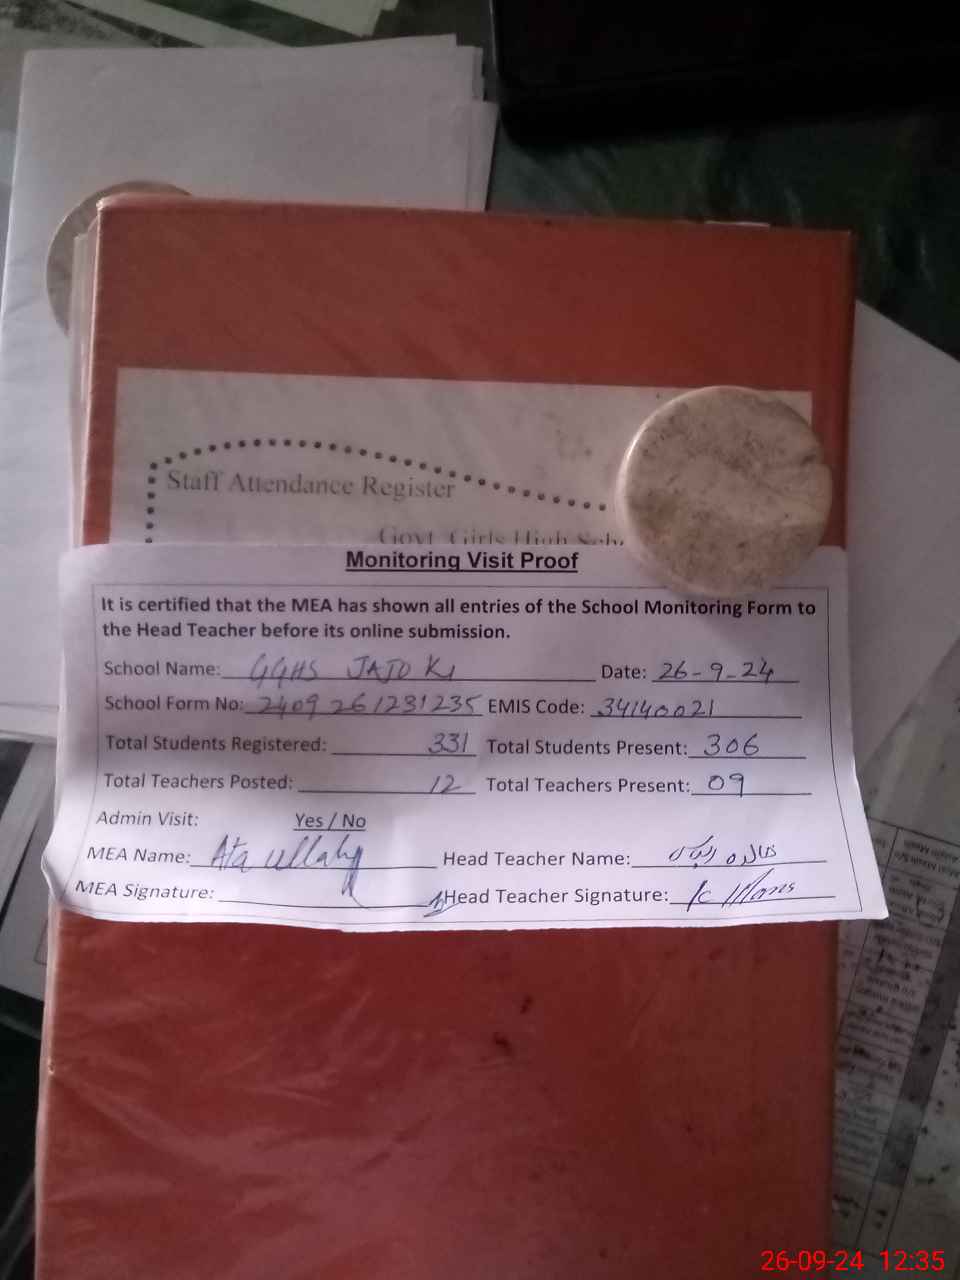 Staff Attendance Register
Govt. Girls High
Monitoring Visit Proof
It is certified that the MEA has shown all entries of the School Monitoring Form to
the Head Teacher before its online submission.
School Name: GGHS JAJO KI Date: 26-9-24
School Form No: 2409 261231235 EMIS Code: 34140021
Total Students Registered: 331 Total Students Present: 306
Total Teachers Posted: 12 Total Teachers Present: 09
Admin Visit: Yes / No
MEA Name: Ata ullah Head Teacher Name: خالدہ الیاس
MEA Signature: Head Teacher Signature:
26-09-24 12:35